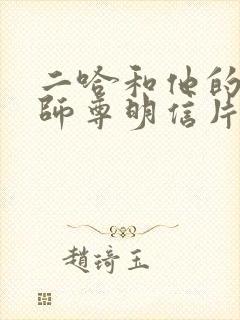 二哈和他的
師尊明信片
趙琦玉